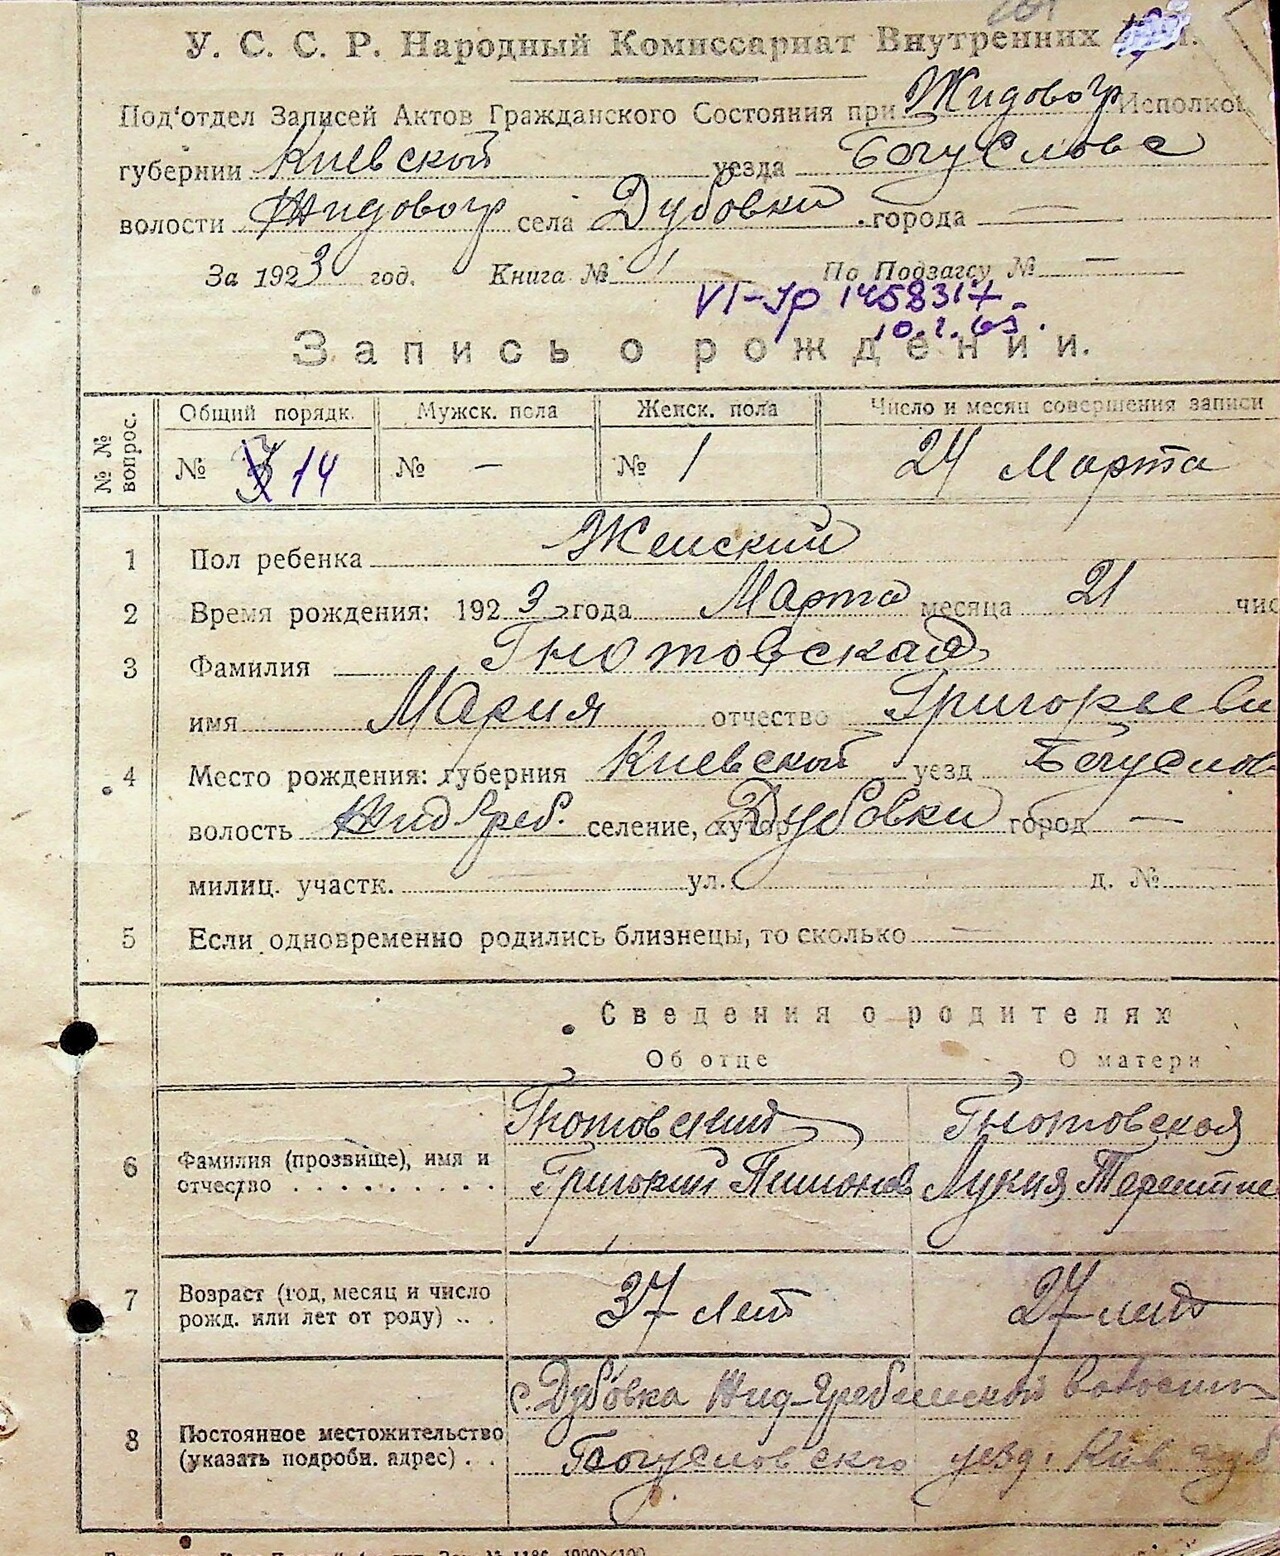 У. С. С. Р. Народный Комиссариат Внутренних
Под'отдел Записей Актов Гражданского Состояния при Жидовогр Исполко
губернии Киевской уезда Богуслове
волости Жидовогр села Дубовки города —
За 1923 год. Книга № 1 По Подзагсу № —
VI-УР 1458317
10.2.65.
Запись о рождении.
№№ вопрос. Общий порядк. Мужск. пола Женск. пола Число и месяц совершения записи
№ 14 № — № 1 24 Марта
1 Пол ребенка Женский
2 Время рождения: 1923 года Марта месяца 21 чис
3 Фамилия Гнотовская
имя Мария отчество Григорьевн
4 Место рождения: губерния Киевской уезд Богуслов
волость Жид Греб. селение, хутор Дубовки город —
милиц. участк. — ул. — д. № —
5 Если одновременно родились близнецы, то сколько —
Сведения о родителях
Об отце О матери
Гнотовский Гнотовская
6 Фамилия (прозвище), имя и
отчество . . . . . . . . . . Григорий Пимонов Лукия Терентие
7 Возраст (год, месяц и число
рожд. или лет от роду) . . . 37 лет 27 лет
с. Дубовка Жид-Гребельской волости
8 Постоянное местожительство
(указать подробн. адрес) . . Богуславского уезд. Киев губ